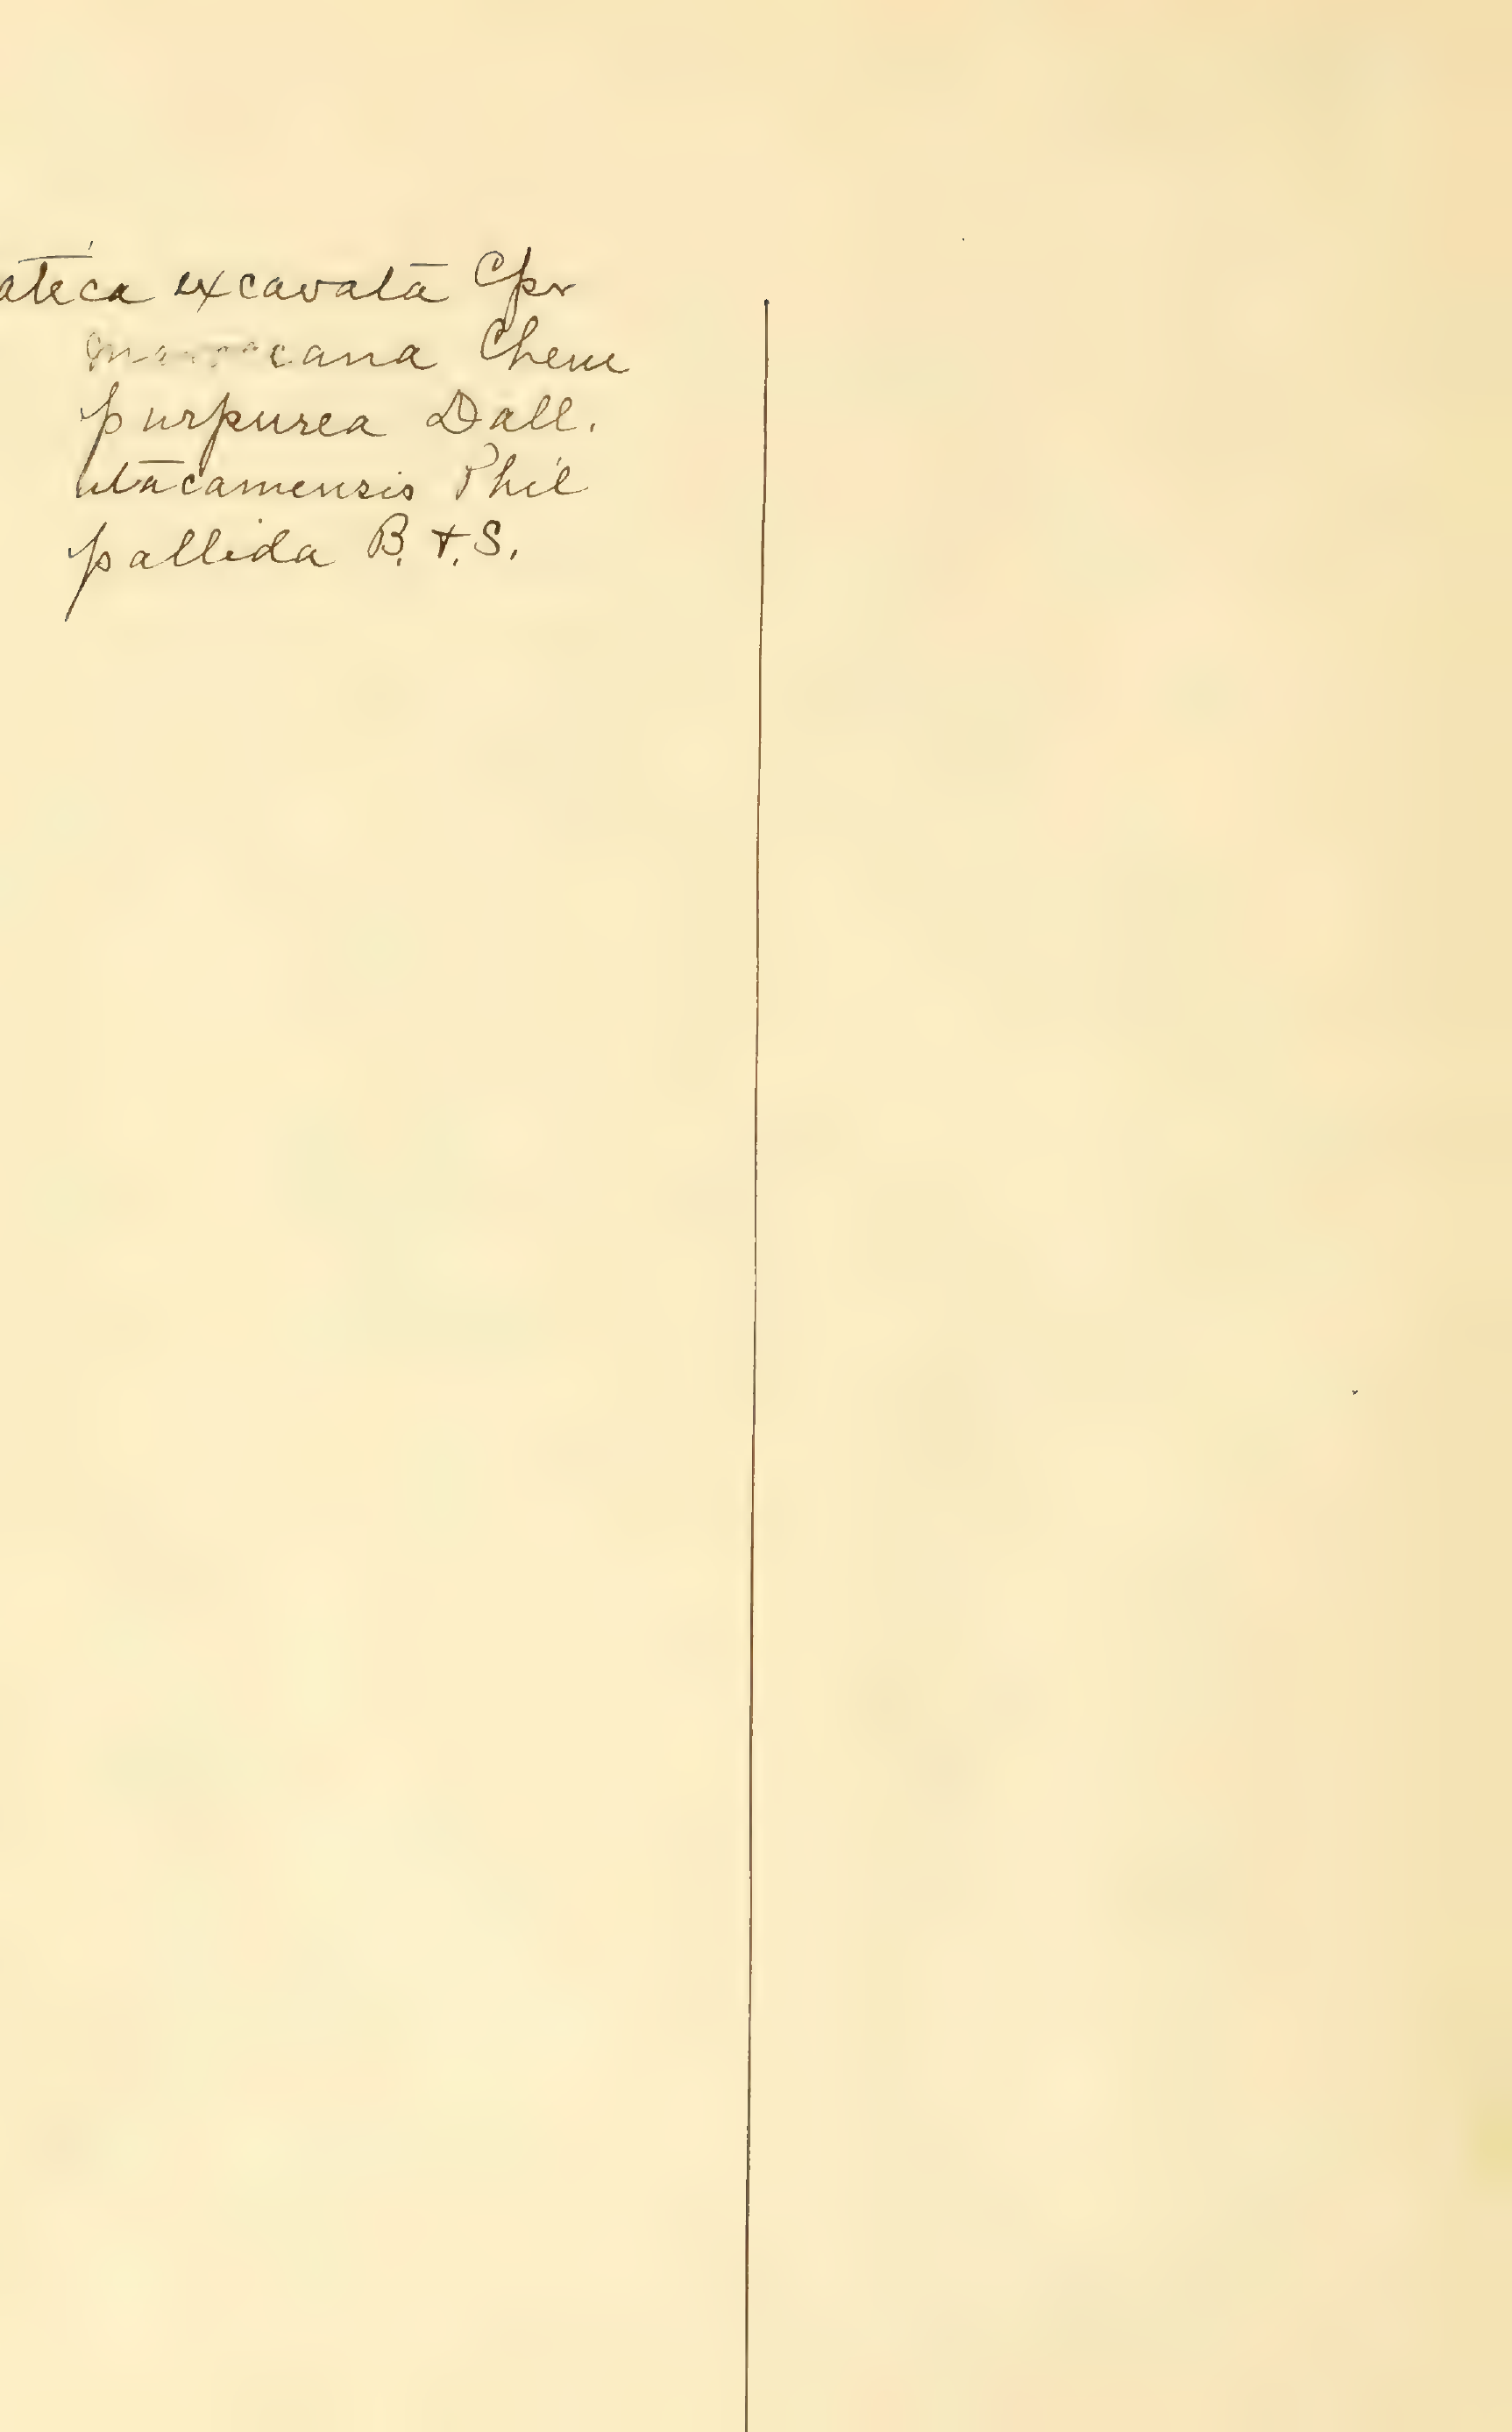 ateca excavata Cpr
Chem
purpurea Dall.
atacamensis Phil
pallida B. & S.